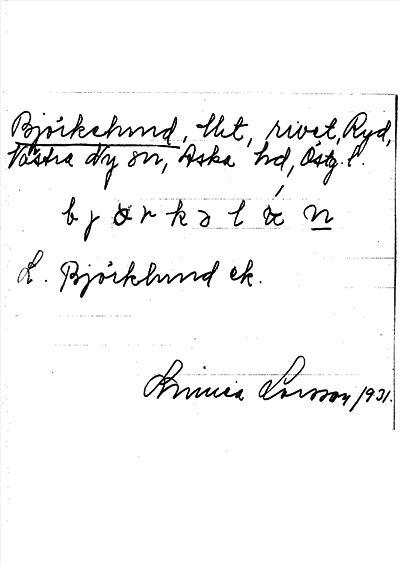 Björkelund, lht, rivet, Ryd,
Västra Ny sn, Aska hd, Östg. l.
b j ə r k ə l ǻ n
L. Björklund ek.
Linnea Larsson 1931.